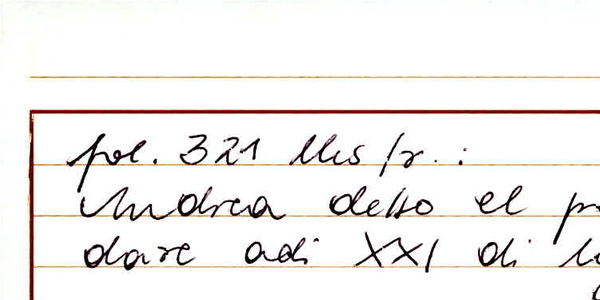 fol. 321
Andrea detto el
dare adi XXI di